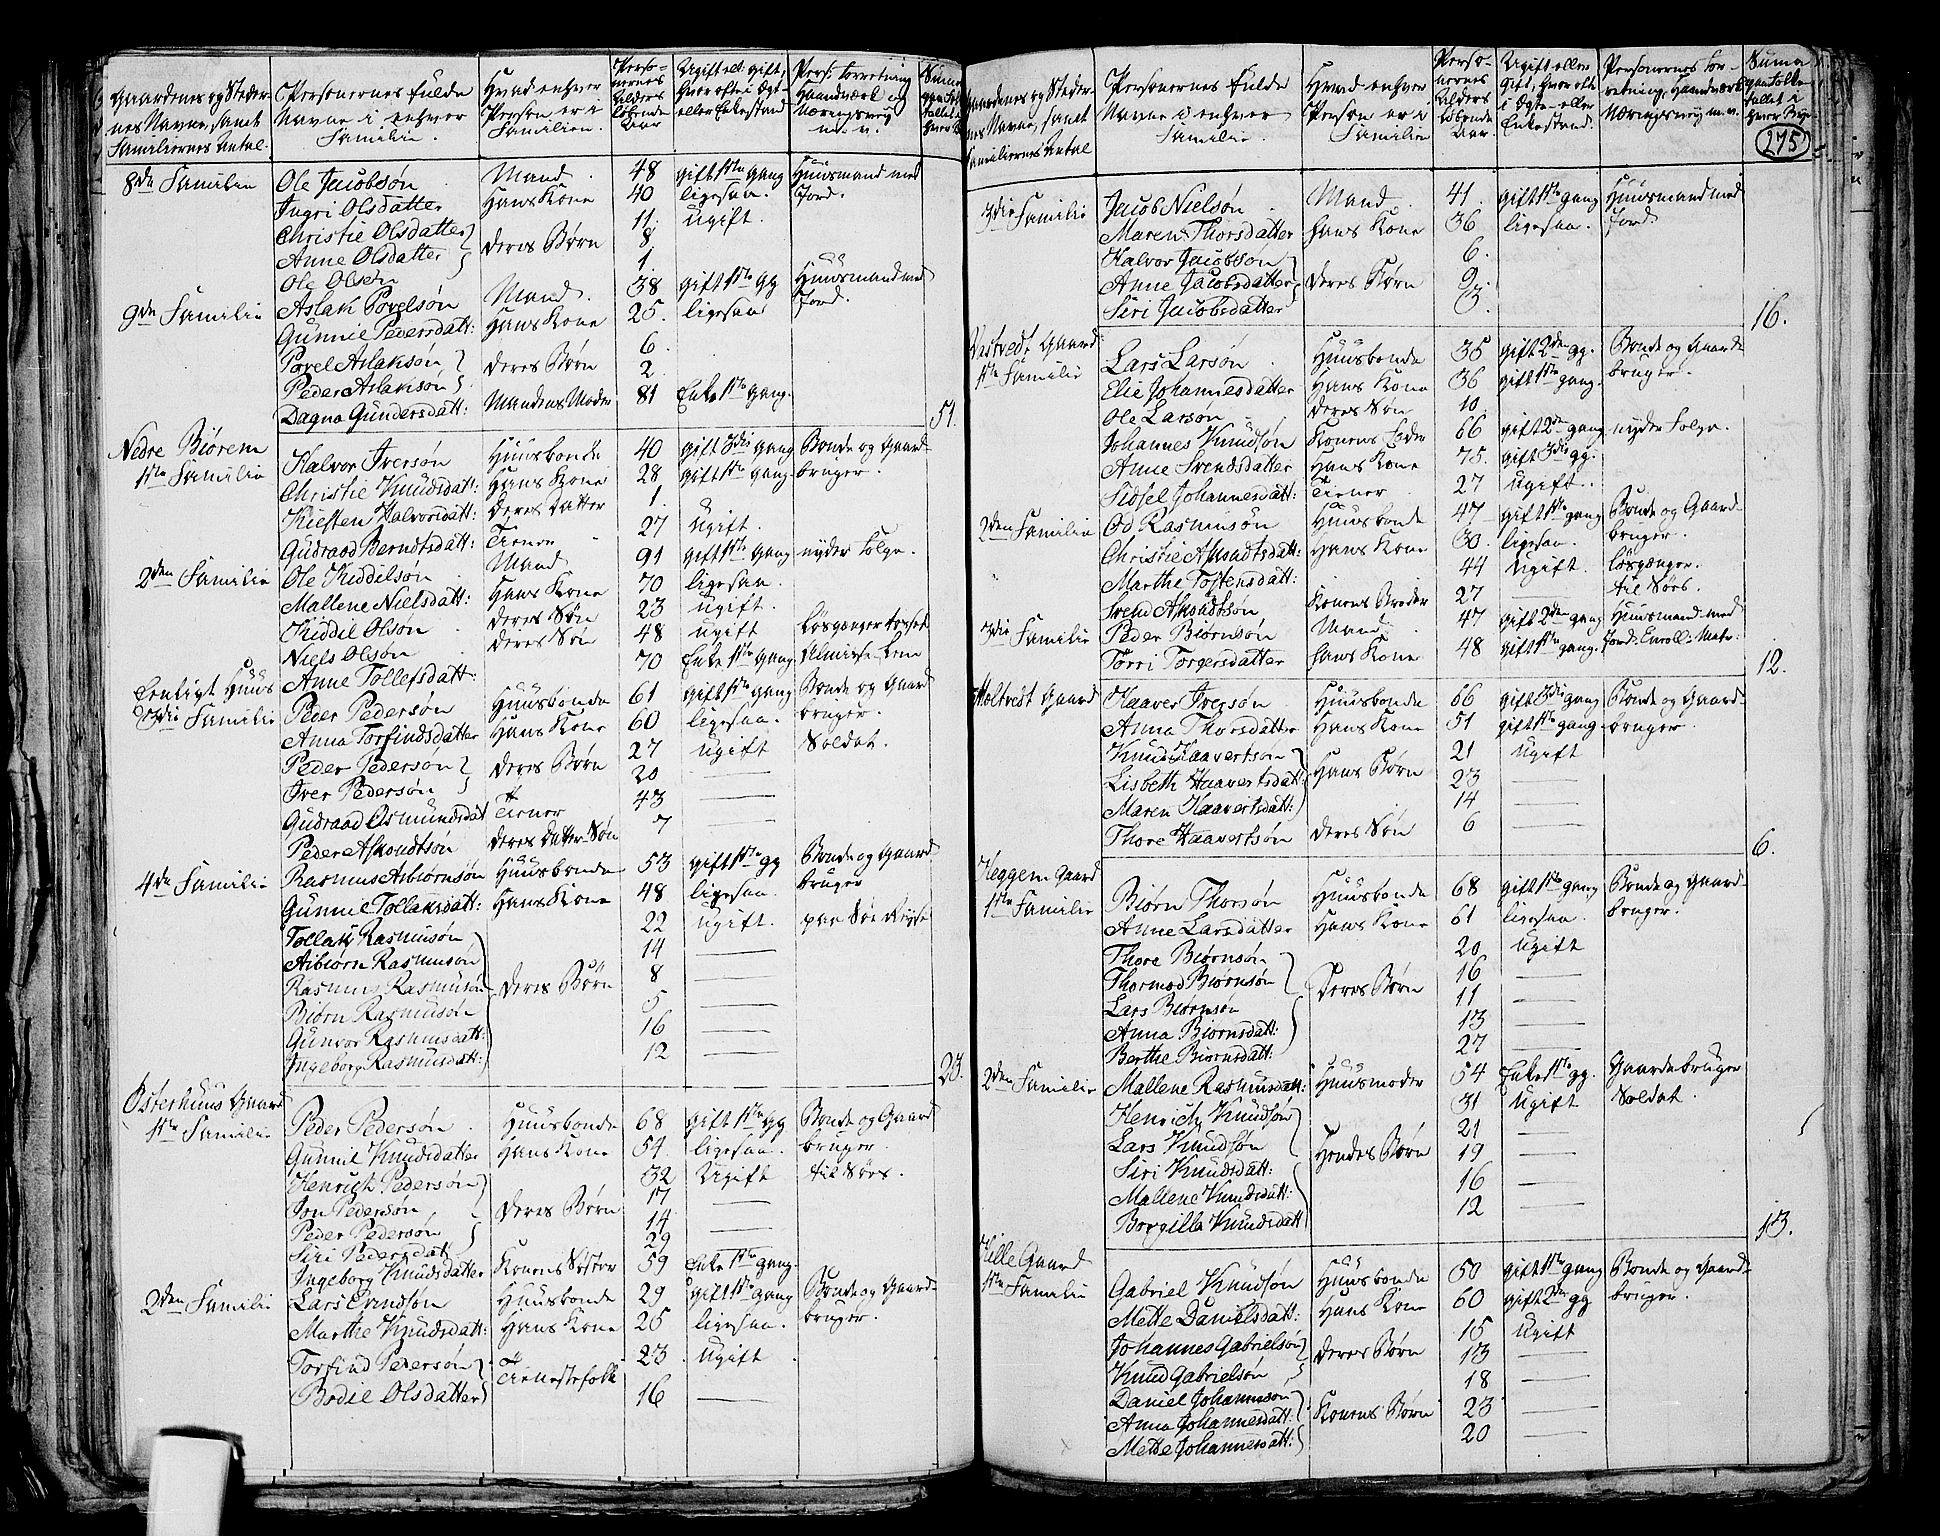 Gaardenes og Steder- nes Navne, samt Familiernes Antal. | Personernes fulde Navne i enhver Familie. | Hvad enhver Person er i Familien. | Perso- nernes Alders løbende Aar | Ugift ell: gift, hvor ofte i Ægte- eller Enkestand | Pers: Forretning Haandværk og Næringsvej m. v.
8de Familie | Ole Jacobsøn | Mand | 48 | gift 1ste gang | Huusmand med
Ingri Olsdatter | Hans Kone | 40 | ligesaa. | Jord.
Christie Olsdatter | deres Børn | 11. | ugift.
Anne Olsdatter | 8
Ole Olsen | 1
9de Familie | Aslak Povelsøn | Mand. | 38 | gift 1ste gg | Huusmand med
Gunnil Pedersdatt: | Hans Kone | 25. | ligesaa | Jord.
Povel Aslaksøn | deres Børn | 6.
Peder Aslaksøn | 2.
Dagna Gundersdatt: | Mandens Moder | 81 | Enke 1ste gang. | 51.
Nedre Biørem
1ste Familie | Halvor Iversøn | Huusbonde | 40 | gift 3die gang | Bonde og Gaard-
Christie Knudsdatt: | Hans Kone | 28 | gift 1ste gang | bruger.
Kirsten Halvorsdatt: | deres Datter | 1.
Gudraad Berndtsdatt: | Tiener | 27 | ugift.
2den Familie | Ole Kiddilsøn | Mand | 91 | gift 1ste gang | nyder Folge.
Mallene Nielsdatt: | Hans Kone | 70 | ligesaa.
Kiddil Olsøn | deres Søn | 23 | ugift.
Niels Olsøn | deres Søn | 48 | ugift | Løsgænger
Eenligt Huus | Anne Tollefsdatt: | 70 | Enke 1ste gang. | Almisse Lem
3die Familie | Peder Pedersøn | Huusbonde | 61 | gift 1ste gang | Bonde og Gaard
Anna Torfindsdatter | Hans Kone | 60 | ligesaa. | bruger.
Peder Pedersøn | deres Børn | 27 | ugift | Soldat.
Iver Pedersøn | 20 | —
Gudraad Osmundsdat | Tiener | 43 | —
Peder Asmondtsøn | deres Datter Søn | 7 | —
4de Familie | Rasmus Asbiørnsøn | Huusbonde | 53 | gift 1ste gg | Bonde og Gaard-
Gunnil Tollaksdatt: | Hans Kone | 48 | ligesaa. | bruger
Tollak Rasmusøn | deres Børn | 22 | ugift. | paa Søe Reyse
Asbiørn Rasmusøn | 14 | —
Rasmus Rasmusøn | 8 | —
Biørn Rasmusøn | 5 | —
Gunvor Rasmusdatt: | 16 | —
Ingeborg Rasmusdatt: | 12 | — | 23.
Østerhuus Gaard
1ste Familie | Peder Pedersøn | Huusbonde | 68 | gift 1ste gg | Bonde og Gaard
Gunnil Knudsdatter | Hans Kone | 54. | ligesaa. | bruger.
Henrich Pedersøn | deres Børn | 32 | Ugift | til Søes.
Jon Pedersøn | 17 | —
Peder Pedersøn | 14 | —
Siri Pedersdatt | 29 | —
Ingeborg Knudsdatter | Konens Søster | 59 | Enke 1ste gang.
2den Familie | Lars Evindsøn | Huusbonde | 29 | gift 1ste gang | Bonde og Gaard-
Marthe Knudsdatt: | Hans Kone | 25 | ligesaa. | bruger.
Torfind Pedersøn | Tienestefolk | 23 | ugift
Bodil Olsdatter | 16 | —
Gaardenes og Steder- nes Navne, samt Familiernes Antal | Personernes fulde Navne i enhver Familie. | Hvad enhver Person er i Familien | Perso- nernes Alders løbende Aar. | Ugift eller gift, hvor ofte i Ægte- eller Enkestand. | Personernes For- retning, Haandværk Næringsvej m. v. | Suma paa Folke- tallet i hver Bye
275
3die Familie | Jacob Nielsøn | Mand | 41. | gift 1ste gang | Huusmand med
Maren Thorsdatter | hans Kone | 36 | ligesaa. | Jord.
Halvor Jacobsøn | deres Børn | 6.
Anne Jacobsdatter | 9
Siri Jacobsdatter | 3. | 16.
Vestvedt Gaard
1ste Familie | Lars Larsøn | Huusbonde | 35 | gift 2den gg. | Bonde og Gaard-
Elie Johannesdatter | Hans Kone | 36 | gift 1ste gang. | bruger.
Ole Larsøn | deres Søn | 10.
Johannes Knudsøn | Konens Fader | 66 | gift 2den gang | nyder Folge.
Anne Svendsdatter | Hans Kone | 75. | gift 3die gg.
Sidsel Johannesdatt: | Tiener | 27 | ugift.
2den Familie | Od Rasmusøn | Huusbonde | 47 | gift 1ste gang | Bonde og Gaard-
Christie Asmodtsdatt: | Hans Kone | 30. | ligesaa. | bruger.
Marthe Tostensdatt: | 44 | ugift. | løsgænger.
Svend Asmodtsøn | Konens Broder | 27 | — | til Søes.
3die Familie | Peder Biørnsøn | Mand | 47 | gift 2den gang | Huusmand med
Torri Torgersdatter | hans Kone | 48 | gift 1ste gang. | Jord. Enroll: Matr: | 12.
Holtvedt Gaard | Haaver Iversøn | Huusbonde | 66 | gift 3die gang | Bonde og Gaard-
Anna Thorsdatter | Hans Kone | 51 | gift 1ste gang | bruger.
Knud Haavertsøn | Hans Børn | 21 | ugift
Lisbeth Haavertsdatt: | 23 | —
Maren Haavertsdatt: | 14 | —
Thore Haavertsøn | deres Søn | 6 | — | 6.
Heggem Gaard
1ste Familie | Biørn Thorsøn | Huusbonde | 68 | gift 1ste gang | Bonde og Gaard-
Anne Larsdatter | Hans Kone | 61 | ligesaa. | bruger.
Thore Biørnsøn | Deres Børn | 20 | ugift
Thormod Biørnsøn | 16 | —
Lars Biørnsøn | 11 | —
Anna Biørnsdatt: | 13 | —
Berthe Biørnsdatt: | 27 | —
2den Familie | Mallene Rasmusdatt: | Huusmoder | 54 | Enke 1ste gg. | Gaardebruger
Henrich Knudsøn | Hendes Børn | 31 | ugift | Soldat.
Lars Knudsøn | 21 | —
Siri Knudsdatt: | 19 | —
Mallene Knudsdatt: | 16 | —
Borgilla Knudsdatt | 12 | — | 13.
Hille Gaard
1ste Familie | Gabriel Knudsøn | Huusbonde | 50 | gift 1ste gang | Bonde og Gaard-
Mette Danielsdatt: | Hans Kone | 60 | gift 2den gg | bruger.
Johannes Gabrielsøn | deres Børn | 15 | ugift
Knud Gabrielsøn | 13 | —
Daniel Johannesøn | Konens Børn | 18 | —
Anna Johannesdatt: | 23 | —
Mette Johannesdatt: | 20 | —